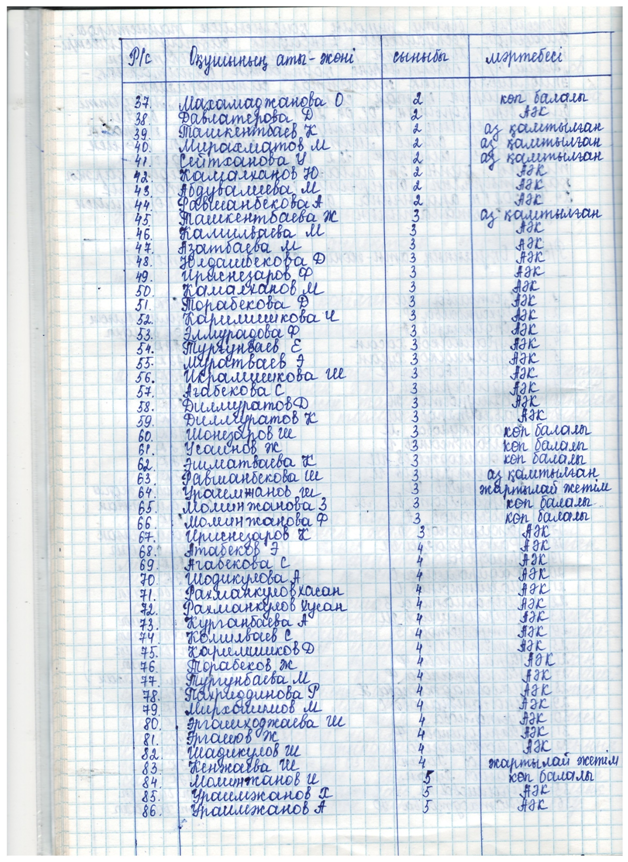 Р/с Оқушының аты-жөні сыныбы мәртебесі
37. Махамаджанова О 2 көп балалы
38 Равлатерова Д 2 АӘК
39. Ташкентбаев К 2 аз қамтылған
40. Мирахматов М 2 аз қамтылған
41. Сейтханова У 2 аз қамтылған
42. Камалханов Ю 2 АӘК
43. Абдувалиева М 2 АӘК
44. Равшанбекова А 2 АӘК
45. Ташкентбаева Ж 3 аз қамтылған
46. Калилваева М 3 АӘК
47. Азатбаева М 3 АӘК
48. Юлдашбекова Д 3 АӘК
49. Ирисназаров Ф 3 АӘК
50 Камалханов М 3 АӘК
51 Торабекова Д 3 АӘК
52. Каримшикова И 3 АӘК
53. Элмурадова Ф 3 АӘК
54. Тургунваев Е 3 АӘК
55. Муратваев Э 3 АӘК
56. Икрамшикова Ш 3 АӘК
57. Агабекова С 3 АӘК
58. Дилмуратов Д 3 АӘК
59. Дилмуратов К 3 АӘК
60. Шоназаров Ш 3 көп балалы
61. Усаинов Ж 3 көп балалы
62. Эшматваева К 3 көп балалы
63. Равшанбекова Ш 3 аз қамтылған
64. Ураимжанов Ш 3 жартылай жетім
65. Моминжанова З 3 көп балалы
66. Моминжанова Ф 3 көп балалы
67. Ирисназаров К 3 АӘК
68. Атабеков Э 4 АӘК
69. Агабекова С 4 АӘК
70 Шадикулова А 4 АӘК
71. Рахманкулов Хасан 4 АӘК
72. Рахманкулов Хусан 4 АӘК
73. Курганбаева А 4 АӘК
74 Калилваев С 4 АӘК
75. Каримшиков Д 4 АӘК
76. Торабеков Ж 4 АӘК
77. Тургунбаева М 4 АӘК
78. Пахриддинова Р 4 АӘК
79. Мирхошимов М 4 АӘК
80. Эргашходжаева Ш 4 АӘК
81. Эргашов Ж 4 АӘК
82. Шадикулов Ш 4 АӘК
83. Кенжаева Ш 4 жартылай жетім
84. Моминжанов И 5 көп балалы
85. Ураимжанов Х 5 АӘК
86. Ураимжанов А 5 АӘК